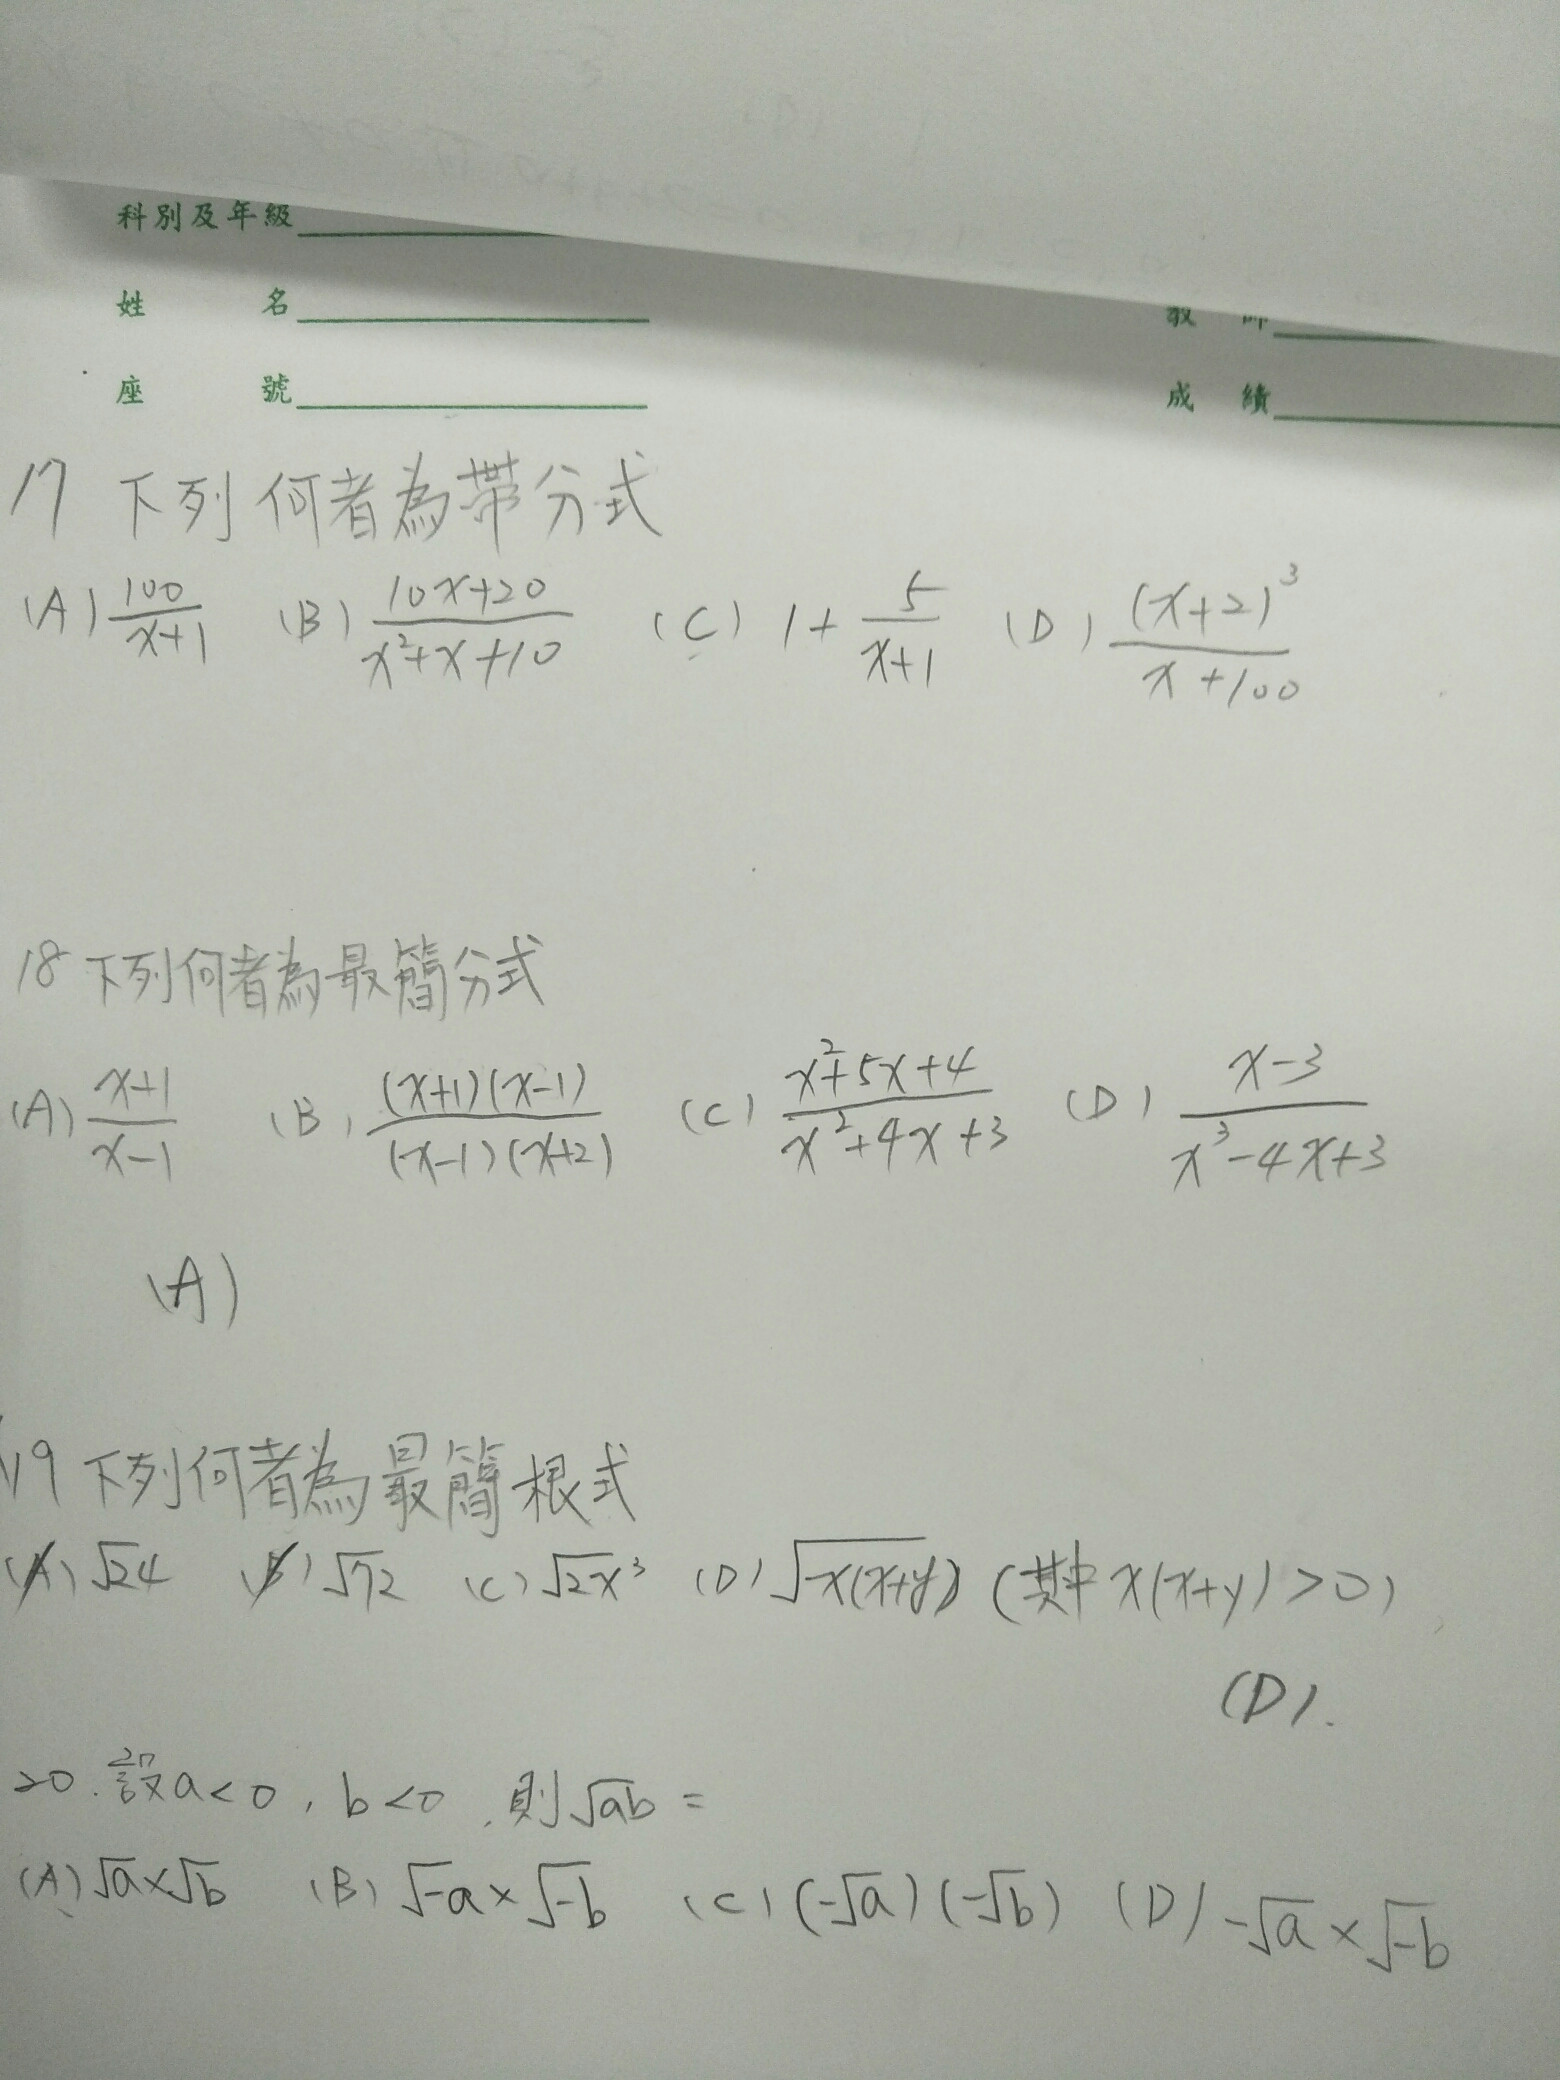 科別及年級
姓 名
教 師
座 號
成 績
17 下列何者為帶分式
(A) 100/(x+1) (B) (10x+20)/(x²+x+10) (C) 1+5/(x+1) (D) (x+2)³/(x+100)
18 下列何者為最簡分式
(A) (x+1)/(x-1) (B) (x+1)(x-1)/(x-1)(x+2) (C) (x²+5x+4)/(x²+4x+3) (D) (x-3)/(x³-4x+3)
(A)
19 下列何者為最簡根式
(A) √24 (B) √72 (C) √2x³ (D) √-x(x+y) (其中x(x+y)>0)
(D).
20. 設a<0, b<0, 則√ab =
(A) √a×√b (B) √-a×√-b (C) (-√a)(-√b) (D) -√a×√-b